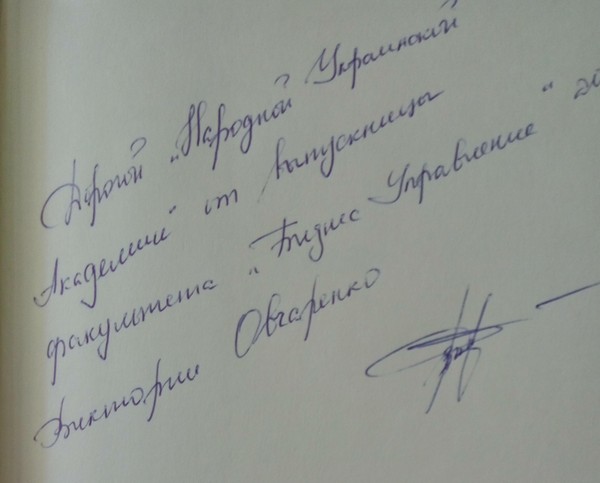 Дорогой „Народной Украинской
Академии" от выпускницы
факультета „Бизнес Управление"
Виктории Овчаренко